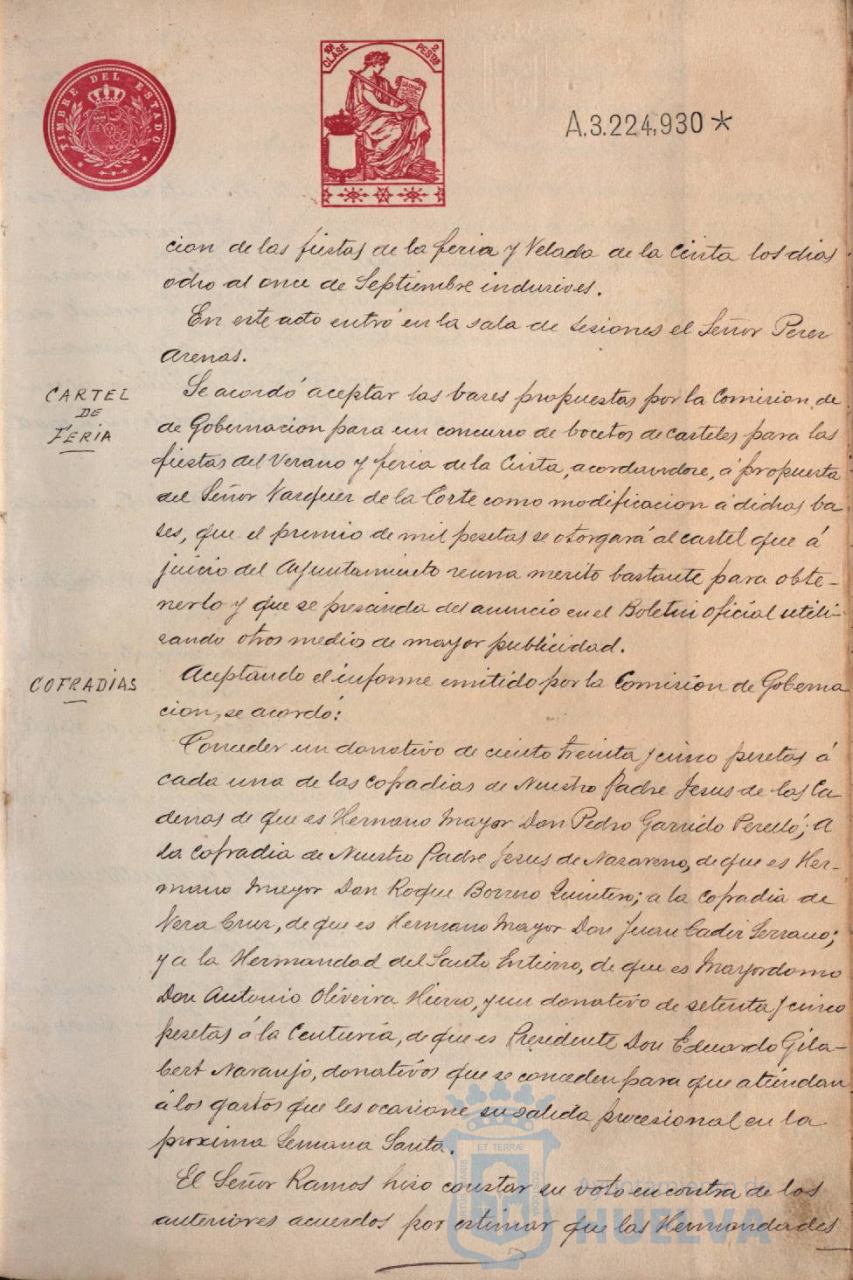 TIMBRE DEL ESTADO
10ª CLASE
2 PESTAS
A.3.224,930*
cion de las fiestas de la feria y Velada de la Cinta los dias
ocho al once de Septiembre inclusives.
En este acto entró en la sala de sesiones el Señor Perez
Arenas.
CARTEL
DE
FERIA
Se acordó aceptar las bases propuestas por la Comision de
de Gobernacion para un concurso de bocetos de carteles para las
fiestas del Verano y feria de la Cinta, acordandose, á propuesta
del Señor Vazquez de la Corte como modificacion á dichas ba
ses, que el premio de mil pesetas se otorgará al cartel que á
juicio del Ayuntamiento reuna merito bastante para obte-
nerlo y que se prescinda del anuncio en el Boletin oficial utili-
zando otros medios de mayor publicidad.
COFRADIAS
Aceptando el informe emitido por la Comisión de Goberna
cion, se acordó:
Conceder un donativo de ciento treinta y cinco pesetas á
cada una de las cofradias de Nuestro Padre Jesus de las Ca
denas de que es Hermano Mayor Don Pedro Garrido Perelló; A
la cofradia de Nuestro Padre Jesus de Nazareno, de que es Her-
mano Mayor Don Roque Borrero Quintero; a la cofradia de
Vera Cruz, de que es Hermano Mayor Don Juan Cadiz Serrano;
y a la Hermandad del Santo Entierro, de que es Mayordomo
Don Antonio Oliveira Hierro, y un donativo de setenta y cinco
pesetas á la Centuria, de que es Presidente Don Eduardo Gila-
bert Naranjo, donativos que se conceden para que atiendan
á los gastos que les ocasione su salida procesional en la
proxima Semana Santa.
El Señor Ramos hizo constar su voto en contra de los
anteriores acuerdos por estimar que las Hermandades
Ayuntamiento de
HUELVA